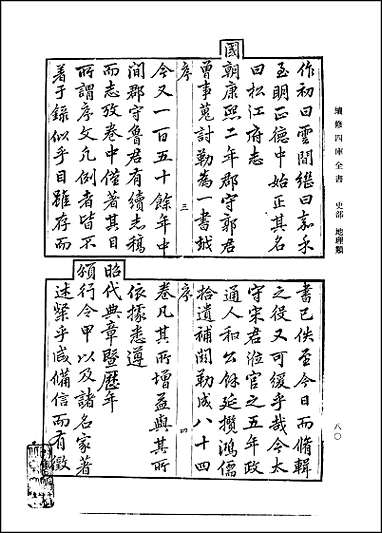 續修四庫全書 史部 地理類
八〇
作初曰雲間繼曰嘉禾
至明正德中始正其名
曰松江府志
國朝康熙二年郡守郭君
曾事蒐討勒為一書
序 三
今又一百五十餘年中
間郡守魯君有續志稿
而志攷卷中僅著其目
所謂序文凡例者皆不
著于錄似乎目雖存而
書已佚至今日而脩輯
之役又可緩乎哉今太
守宋君涖官之五年政
通人和公餘延攬鴻儒
拾遺補闕勒成八十四
序 四
卷凡其所增益與其所
依據悉遵
昭代典章暨歷年
頒行令甲以及諸名家著
述粲乎咸備信而有徵